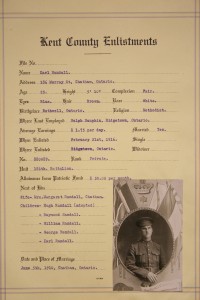 Kent County Enlistments
File No.
Name Earl Randall.
Address Street, Chatham, Ontario.
Age Height 5' Complexion Fair.
Eyes Blue. Hair Brown. Race White.
Birthplace Ontario. Religion Methodist.
Where Last Employed Ralph Ridgetown, Ontario.
Average Earnings $ per day. Married Yes.
When Enlisted February 21st, 1916. Single
Where Enlisted Ridgetown, Ontario. Widower
No. Rank Private.
186th. Battalion.
Allowance from Patriotic Fund $ per month.
Next of Kin
Wife- Mrs. Margaret Randall, Chatham.
Children- Hugh Randall
- Raymond Randall
- William Randall.
- George Randall.
- Earl Randall.
Date and Place of Marriage
June Chatham, Ontario.